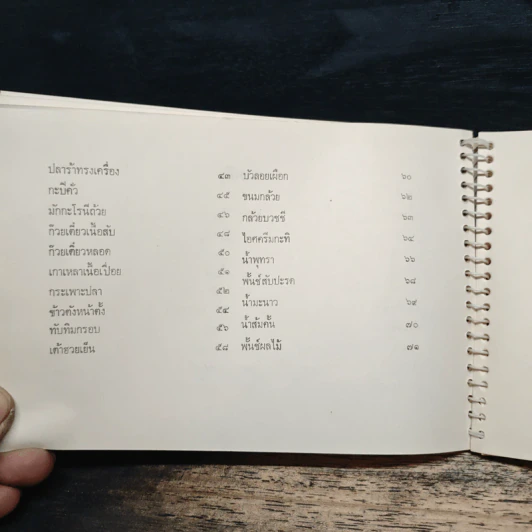 ปลาร้าทรงเครื่อง ๔๓
กะปิคั่ว ๔๕
มักกะโรนีถ้วย ๔๖
ก๊วยเตี๋ยวเนื้อสับ ๔๘
ก๊วยเตี๋ยวหลอด ๕๐
เกาเหลาเนื้อเปื่อย ๕๑
กระเพาะปลา ๕๒
ข้าวตังหน้าตั้ง ๕๔
ทับทิมกรอบ ๕๖
เต้าฮวยเย็น ๕๘
บัวลอยเผือก ๖๐
ขนมกล้วย ๖๒
กล้วยบวชชี ๖๓
ไอศครีมกะทิ ๖๔
น้ำพุทรา ๖๖
พั้นช์สับปะรด ๖๘
น้ำมะนาว ๖๙
น้ำส้มคั้น ๗๐
พั้นช์ผลไม้ ๗๑